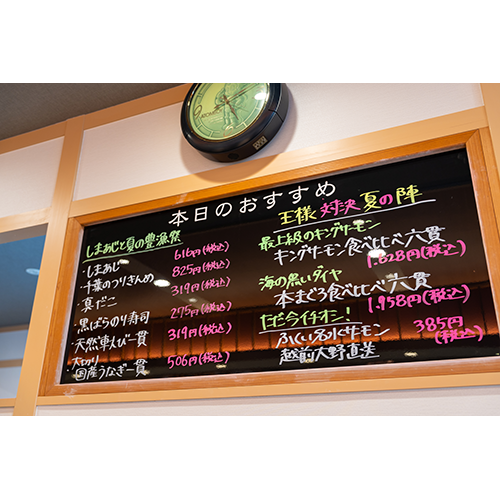 本日のおすすめ
しまあじと夏の豊漁祭
・しまあじ 616円(税込)
・千葉のつりきんめ 825円(税込)
・真だこ 319円(税込)
・黒ばらのり寿司 275円(税込)
・天然車えび一貫 319円(税込)
・大切り
国産うなぎ一貫 506円(税込)
王様対決 夏の陣
最上級のキングサーモン
キングサーモン食べ比べ六貫
1,628円(税込)
海の黒いダイヤ
本まぐろ食べ比べ六貫
1,958円(税込)
ただ今イチオシ!
ふくい名水サーモン 385円
越前大野直送 (税込)